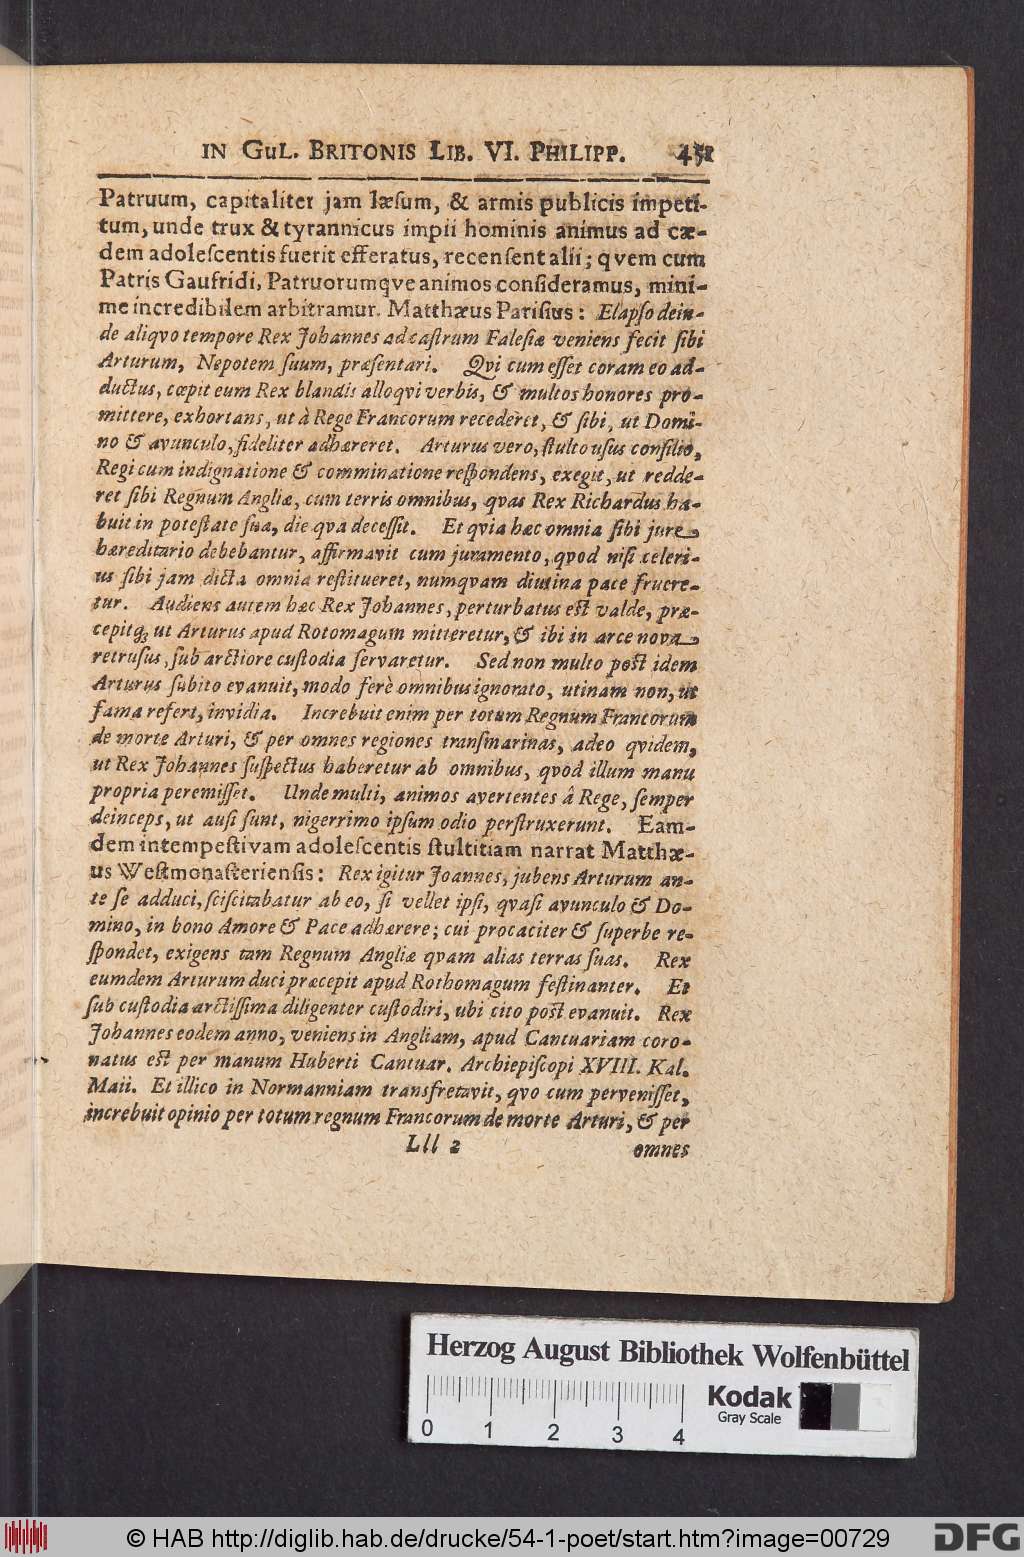 IN GuL. BRITONIS LIB. VI. PHILIPP. 451
Patruum, capitaliter jam læſum, & armis publicis impeti-
tum, unde trux & tyrannicus impii hominis animus ad cæ-
dem adoleſcentis fuerit efferatus, recenſent alii; qvem cum
Patris Gaufridi, Patruorumqve animos conſideramus, mini-
me incredibilem arbitramur. Matthæus Pariſius: Elapſo dein-
de aliqvo tempore Rex Johannes ad caſtrum Faleſiæ veniens fecit ſibi
Arturum, Nepotem ſuum, præſentari. Qvi cum eſſet coram eo ad-
ductus, cœpit eum Rex blandis alloqvi verbis, & multos honores pro-
mittere, exhortans, ut à Rege Francorum recederet, & ſibi, ut Domi-
no & avunculo, fideliter adhæreret. Arturus vero, ſtulto uſus conſilio,
Regi cum indignatione & comminatione reſpondens, exegit, ut redde-
ret ſibi Regnum Angliæ, cum terris omnibus, qvas Rex Richardus ha-
buit in poteſtate ſua, die qva deceſſit. Et qvia hæc omnia ſibi jure
hæreditario debebantur, affirmavit cum juramento, qvod niſi celeri-
us ſibi jam dicta omnia reſtitueret, numqvam diutina pace fruere-
tur. Audiens autem hæc Rex Johannes, perturbatus eſt valde, præ-
cepitq; ut Arturus apud Rotomagum mitteretur, & ibi in arce nova
retruſus, ſub arctiore cuſtodia ſervaretur. Sed non multo poſt idem
Arturus ſubito evanuit, modo ferè omnibus ignorato, utinam non, ut
fama refert, invidia. Increbuit enim per totum Regnum Francorum
de morte Arturi, & per omnes regiones transmarinas, adeo qvidem,
ut Rex Johannes ſuſpectus haberetur ab omnibus, qvod illum manu
propria peremiſſet. Unde multi, animos avertentes â Rege, ſemper
deinceps, ut auſi ſunt, nigerrimo ipſum odio perſtruxerunt. Eam-
dem intempeſtivam adoleſcentis ſtultitiam narrat Matthæ-
us Weſtmonaſterienſis: Rex igitur Joannes, jubens Arturum an-
te ſe adduci, ſciſcitabatur ab eo, ſi vellet ipſi, qvaſi avunculo & Do-
mino, in bono Amore & Pace adhærere; cui procaciter & ſuperbe re-
ſpondet, exigens tam Regnum Angliæ qvam alias terras ſuas. Rex
eumdem Arturum duci præcepit apud Rothomagum feſtinanter. Et
ſub cuſtodia arctiſſima diligenter cuſtodiri, ubi cito poſt evanuit. Rex
Johannes eodem anno, veniens in Angliam, apud Cantuariam coro-
natus eſt per manum Huberti Cantuar. Archiepiſcopi XVIII. Kal.
Maii. Et illico in Normanniam transfretavit, qvo cum perveniſſet,
increbuit opinio per totum regnum Francorum de morte Arturi, & per
Lll 2 omnes
Herzog August Bibliothek Wolfenbüttel
Kodak
Gray Scale
0 1 2 3 4
© HAB http://diglib.hab.de/drucke/54-1-poet/start.htm?image=00729
DFG